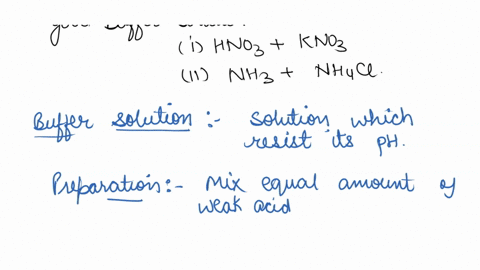 good Buffer
(i) HNO3 + KNO3
(ii) NH3 + NH4Cl.
Buffer solution :- solution which
resist its pH.
Preparation :- Mix equal amount of
weak acid